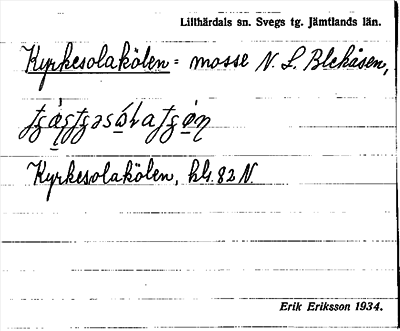 Lillhärdals sn. Svegs tg. Jämtlands län.
Kyrkesolakölen = mosse N. L. Blekåsen,
Kyrkesolakölen, kls. 82 N.
Erik Eriksson 1934.